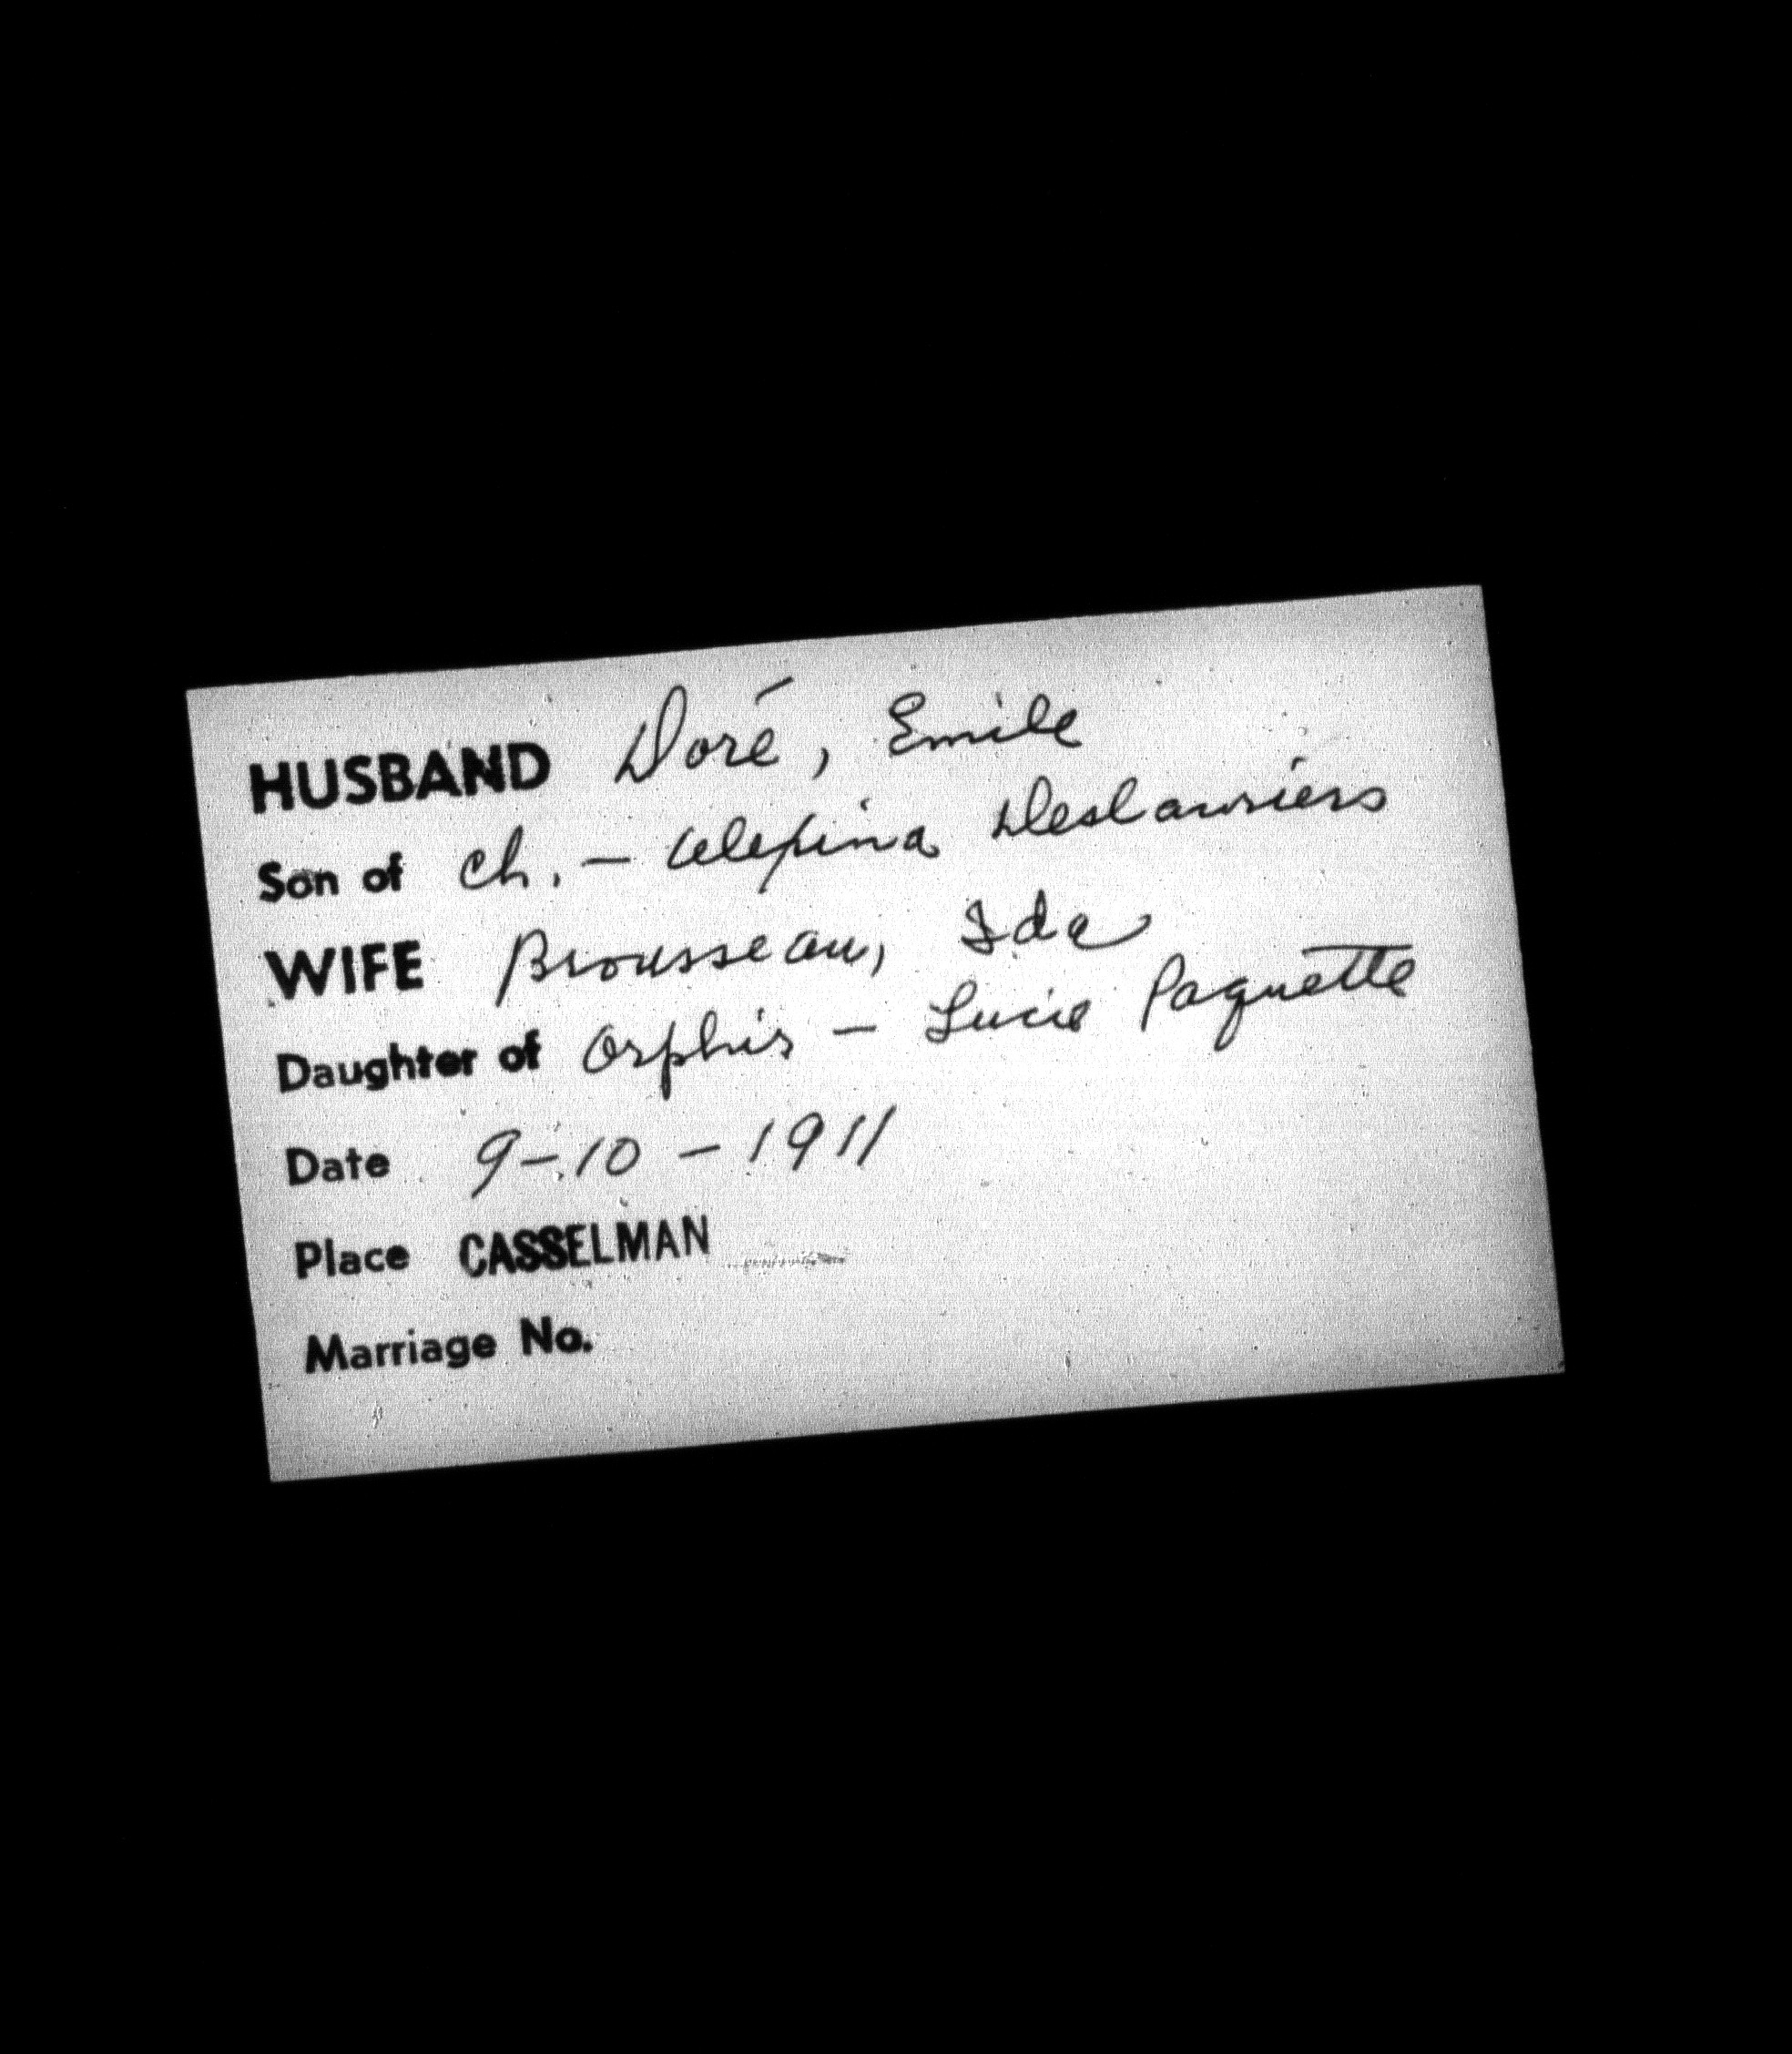 HUSBAND Doré, Emile
Son of Ch. - Alepina Deslauriers
WIFE Brousseau, Ida
Daughter of Orphis - Lucie Paquette
Date 9-10-1911
Place CASSELMAN
Marriage No.